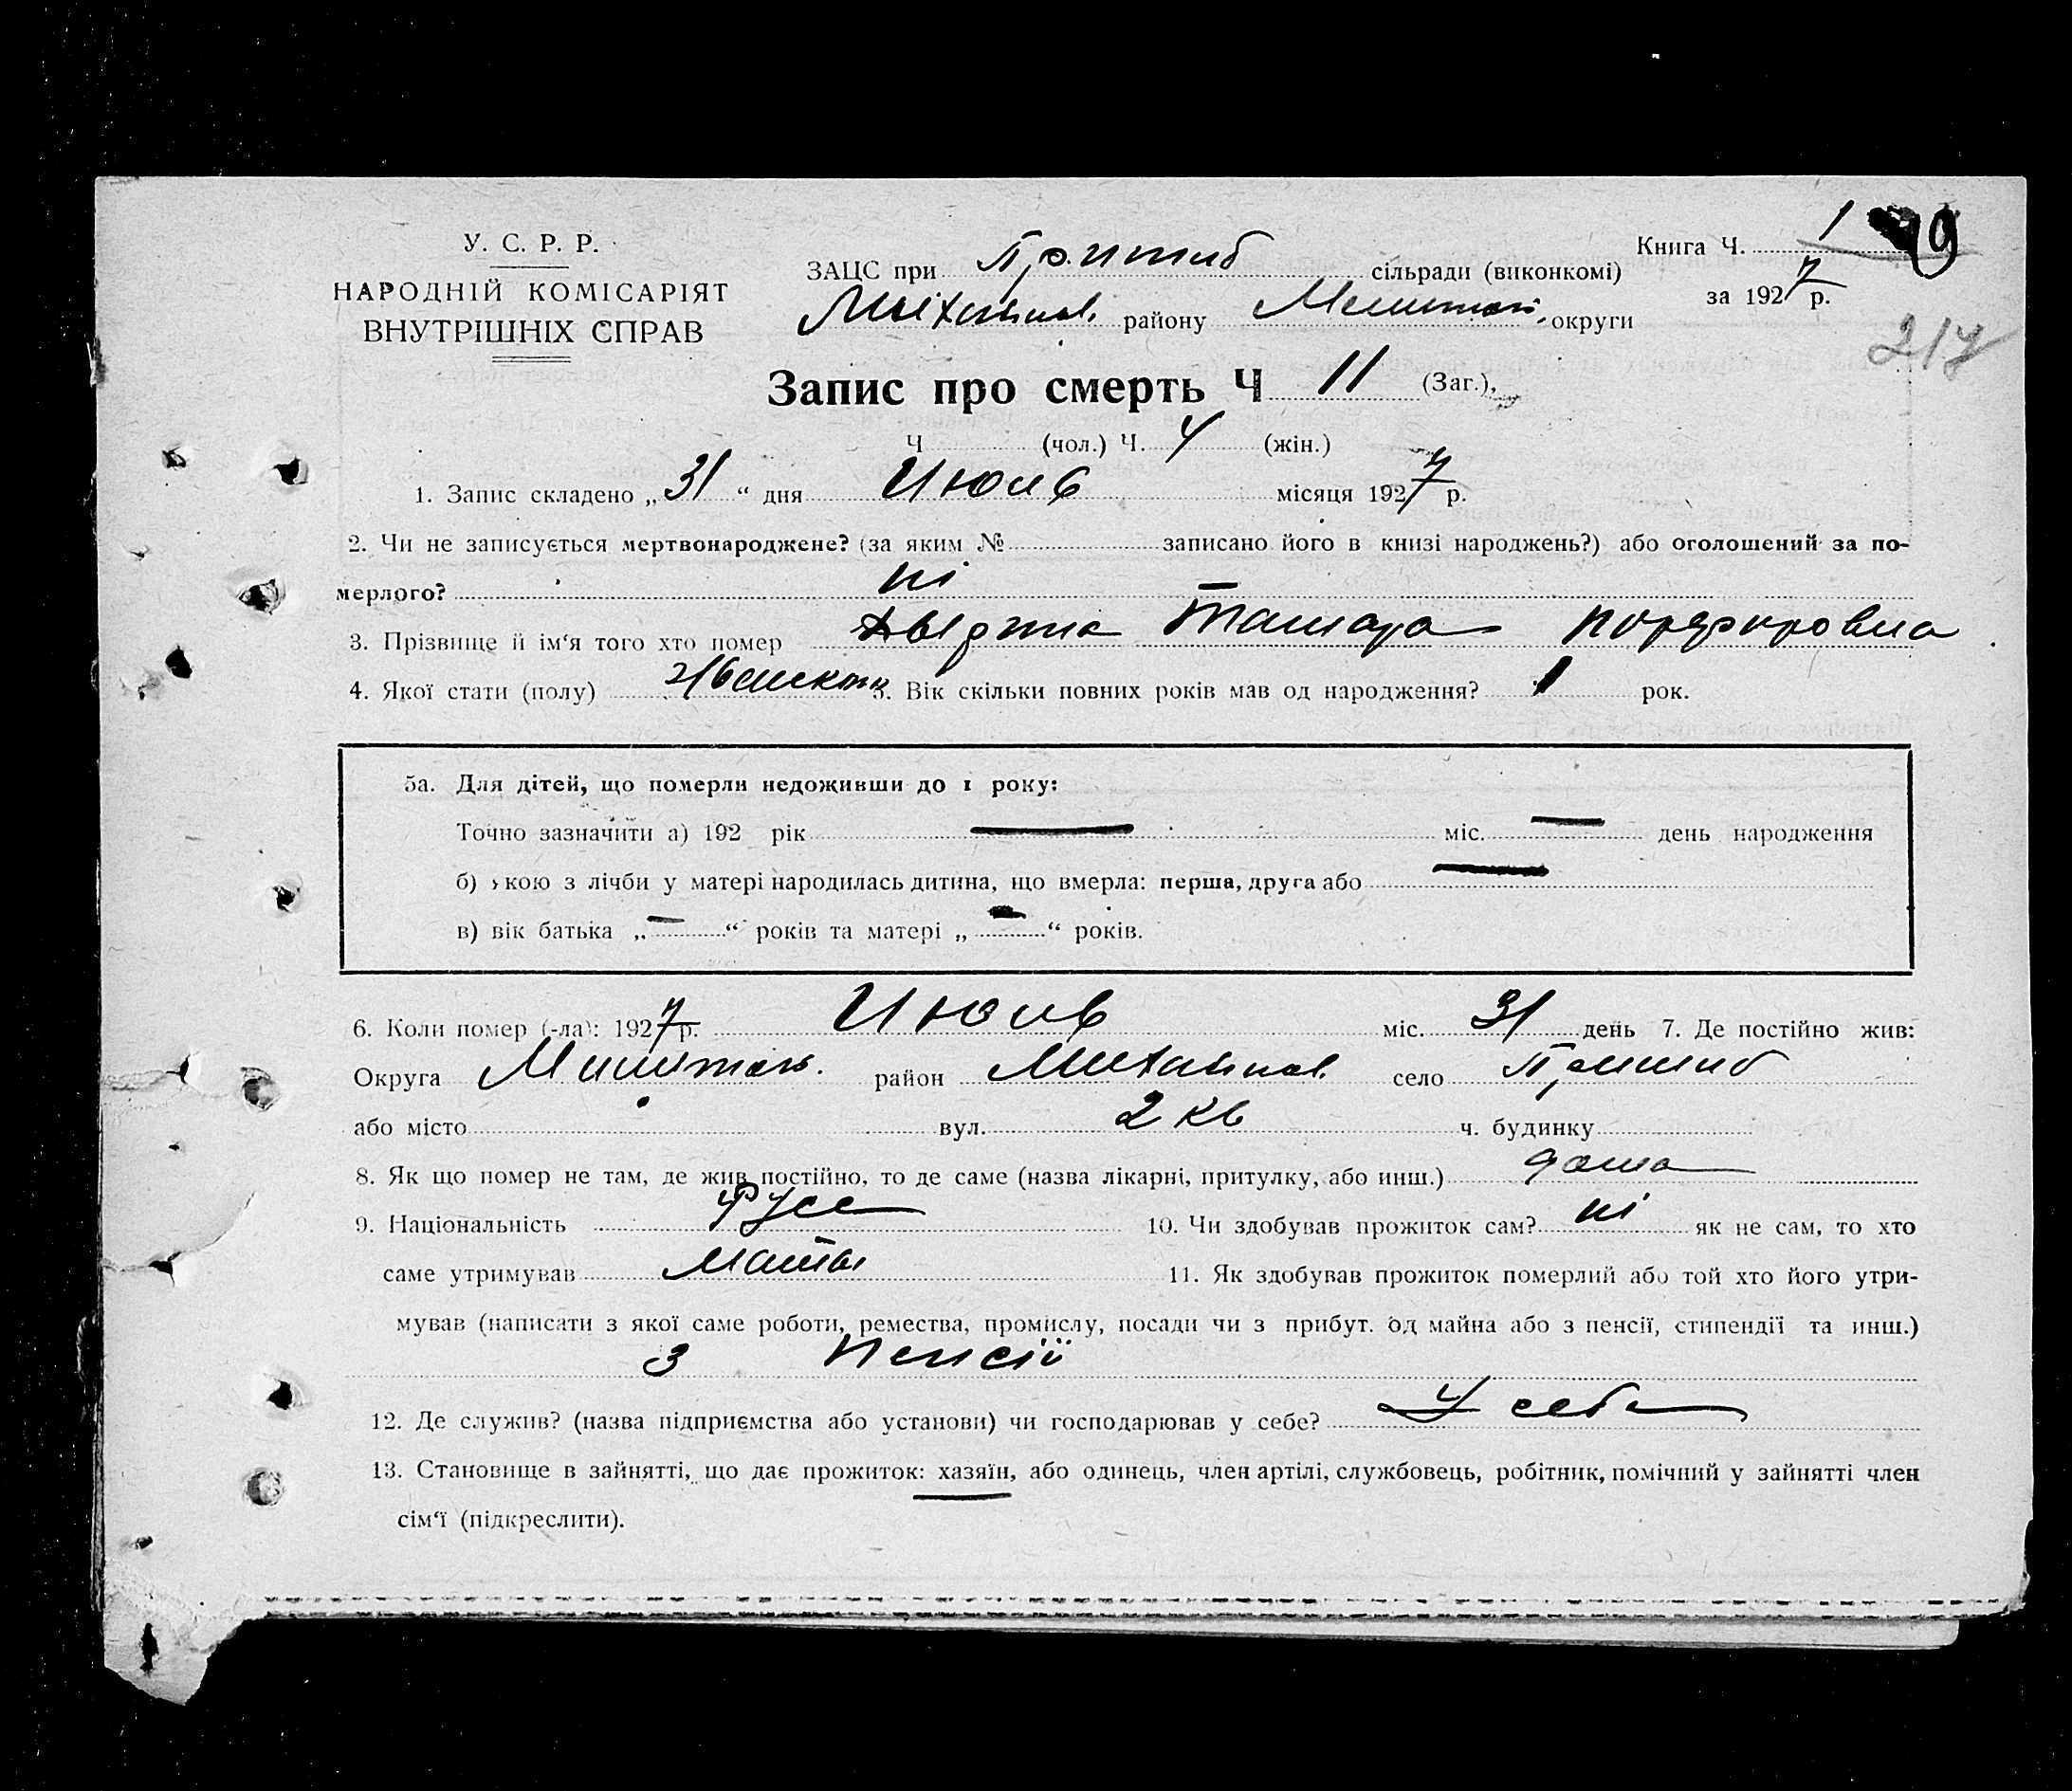 У. С. Р. Р.
НАРОДНІЙ КОМІСАРІЯТ
ВНУТРІШНІХ СПРАВ
ЗАЦС при Пришиб сільради (виконкомі)
Михайлов. району Мелитоп. округи
Книга Ч. 1
9
за 1927 р.
217
Запис про смерть Ч 11 (Заг.),
Ч (чол.) Ч. 4 (жін.)
1. Запис складено „31“ дня Июль місяця 1927 р.
2. Чи не записується мертвонароджене? (за яким № записано його в книзі народжень?) або оголошений за по-
мерлого? ні
3. Прізвище й ім‘я того хто помер Тамара Порфировна
4. Якої стати (полу) Женскоти 5. Вік скільки повних років мав од народження? 1 рок.
5а. Для дітей, що померли недоживши до 1 року:
Точно зазначити а) 192 рік — міс. — день народження
б) якою з лічби у матері народилась дитина, що вмерла: перша, друга або —
в) вік батька „—“ років та матері „—“ років.
6. Коли помер (-ла): 1927 р. Июль міс. 31 день 7. Де постійно жив:
Округа Милитоп. район Михайлов. село Пришиб
або місто вул. 2 кв ч. будинку
8. Як що помер не там, де жив постійно, то де саме (назва лікарні, притулку, або инш.) дома
9. Національність Русс 10. Чи здобував прожиток сам? ні як не сам, то хто
саме утримував Мать 11. Як здобував прожиток померлий або той хто його утри-
мував (написати з якої саме роботи, ремества, промислу, посади чи з прибут. од майна або з пенсії, стипендії та инш.)
З Пенсії
12. Де служив? (назва підприємства або установи) чи господарював у себе? У себе
13. Становище в зайнятті, що дає прожиток: хазяїн, або одинець, член артілі, службовець, робітник, помічний у зайнятті член
сім‘ї (підкреслити).